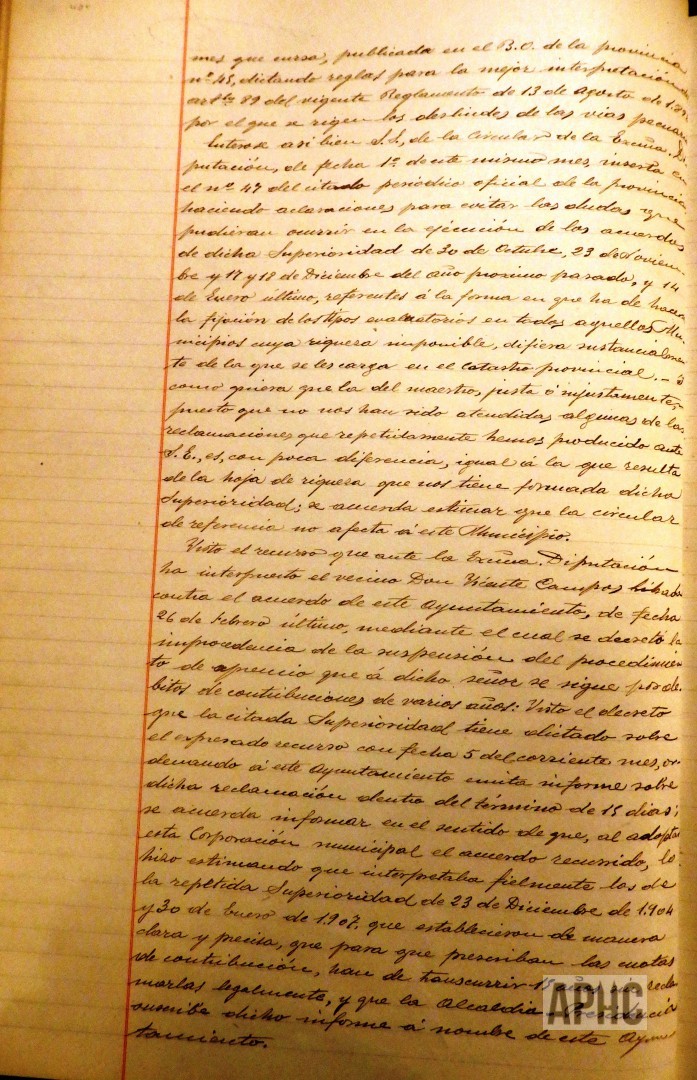 mes que cursa, publicada en el B.O. de la provincia
nº 45, dictando reglas para la mejor interpretación del
artº 89 del vigente Reglamento de 13 de Agosto de
por el que se rigen los deslindes de las vias pecuarias
Enterose asi bien S.S. de la Circular de la Excma. Di
putación, de fecha 1º de este mismo mes, inserta en
el nº 47 del citado periódico oficial de la provincia
haciendo aclaraciones para evitar las dudas que
pudieran ocurrir en la ejecución de los acuerdos
de dicha Superioridad de 30 de Octubre, 23 de Noviem
bre y 17 y 18 de Diciembre del año proximo pasado, y 14
de Enero último, referentes á la forma en que ha de hacer
la fijación de los tipos evaluatorios en todos aquellos Mu
nicipios cuya riqueza imponible, difiera sustancialmen
te de la que se les carga en el Catastro provincial.
como quiera que la del nuestro, justa ó injustamente,
puesto que no nos han sido atendidas algunas de las
reclamaciones que repetidamente hemos producido ante
S.E., es, con poca diferencia, igual á la que resulta
de la hoja de riqueza que nos tiene formada dicha
Superioridad; se acuerda estimar que la circular
de referencia no afecta á este Municipio.
Visto el recurso que ante la Excma. Diputación
ha interpuesto el vecino Don Vicente Campos
contra el acuerdo de este Ayuntamiento, de fecha
26 de Febrero último, mediante el cual se decretó la
improcedencia de la suspensión del procedimien
to de apremio que á dicho señor se sigue por dé
bitos de contribuciones de varios años: Visto el decreto
que la citada Superioridad tiene dictado sobre
el expresado recurso con fecha 5 del corriente mes, or
denando á este Ayuntamiento emita informe sobre
dicha reclamación dentro del término de 15 dias;
se acuerda informar en el sentido de que, al adoptar
esta Corporación municipal el acuerdo recurrido, lo
hizo estimando que interpretaba fielmente los de
la repetida Superioridad de 23 de Diciembre de 1.904
y 30 de Enero de 1.907, que establecieron de manera
clara y precisa, que para que prescriban las cuotas
de contribución, han de transcurrir 15 años sin recla
marlas legalmente, y que la Alcaldia Presidencia
suscriba dicho informe á nombre de este Ayun
tamiento.
APHC